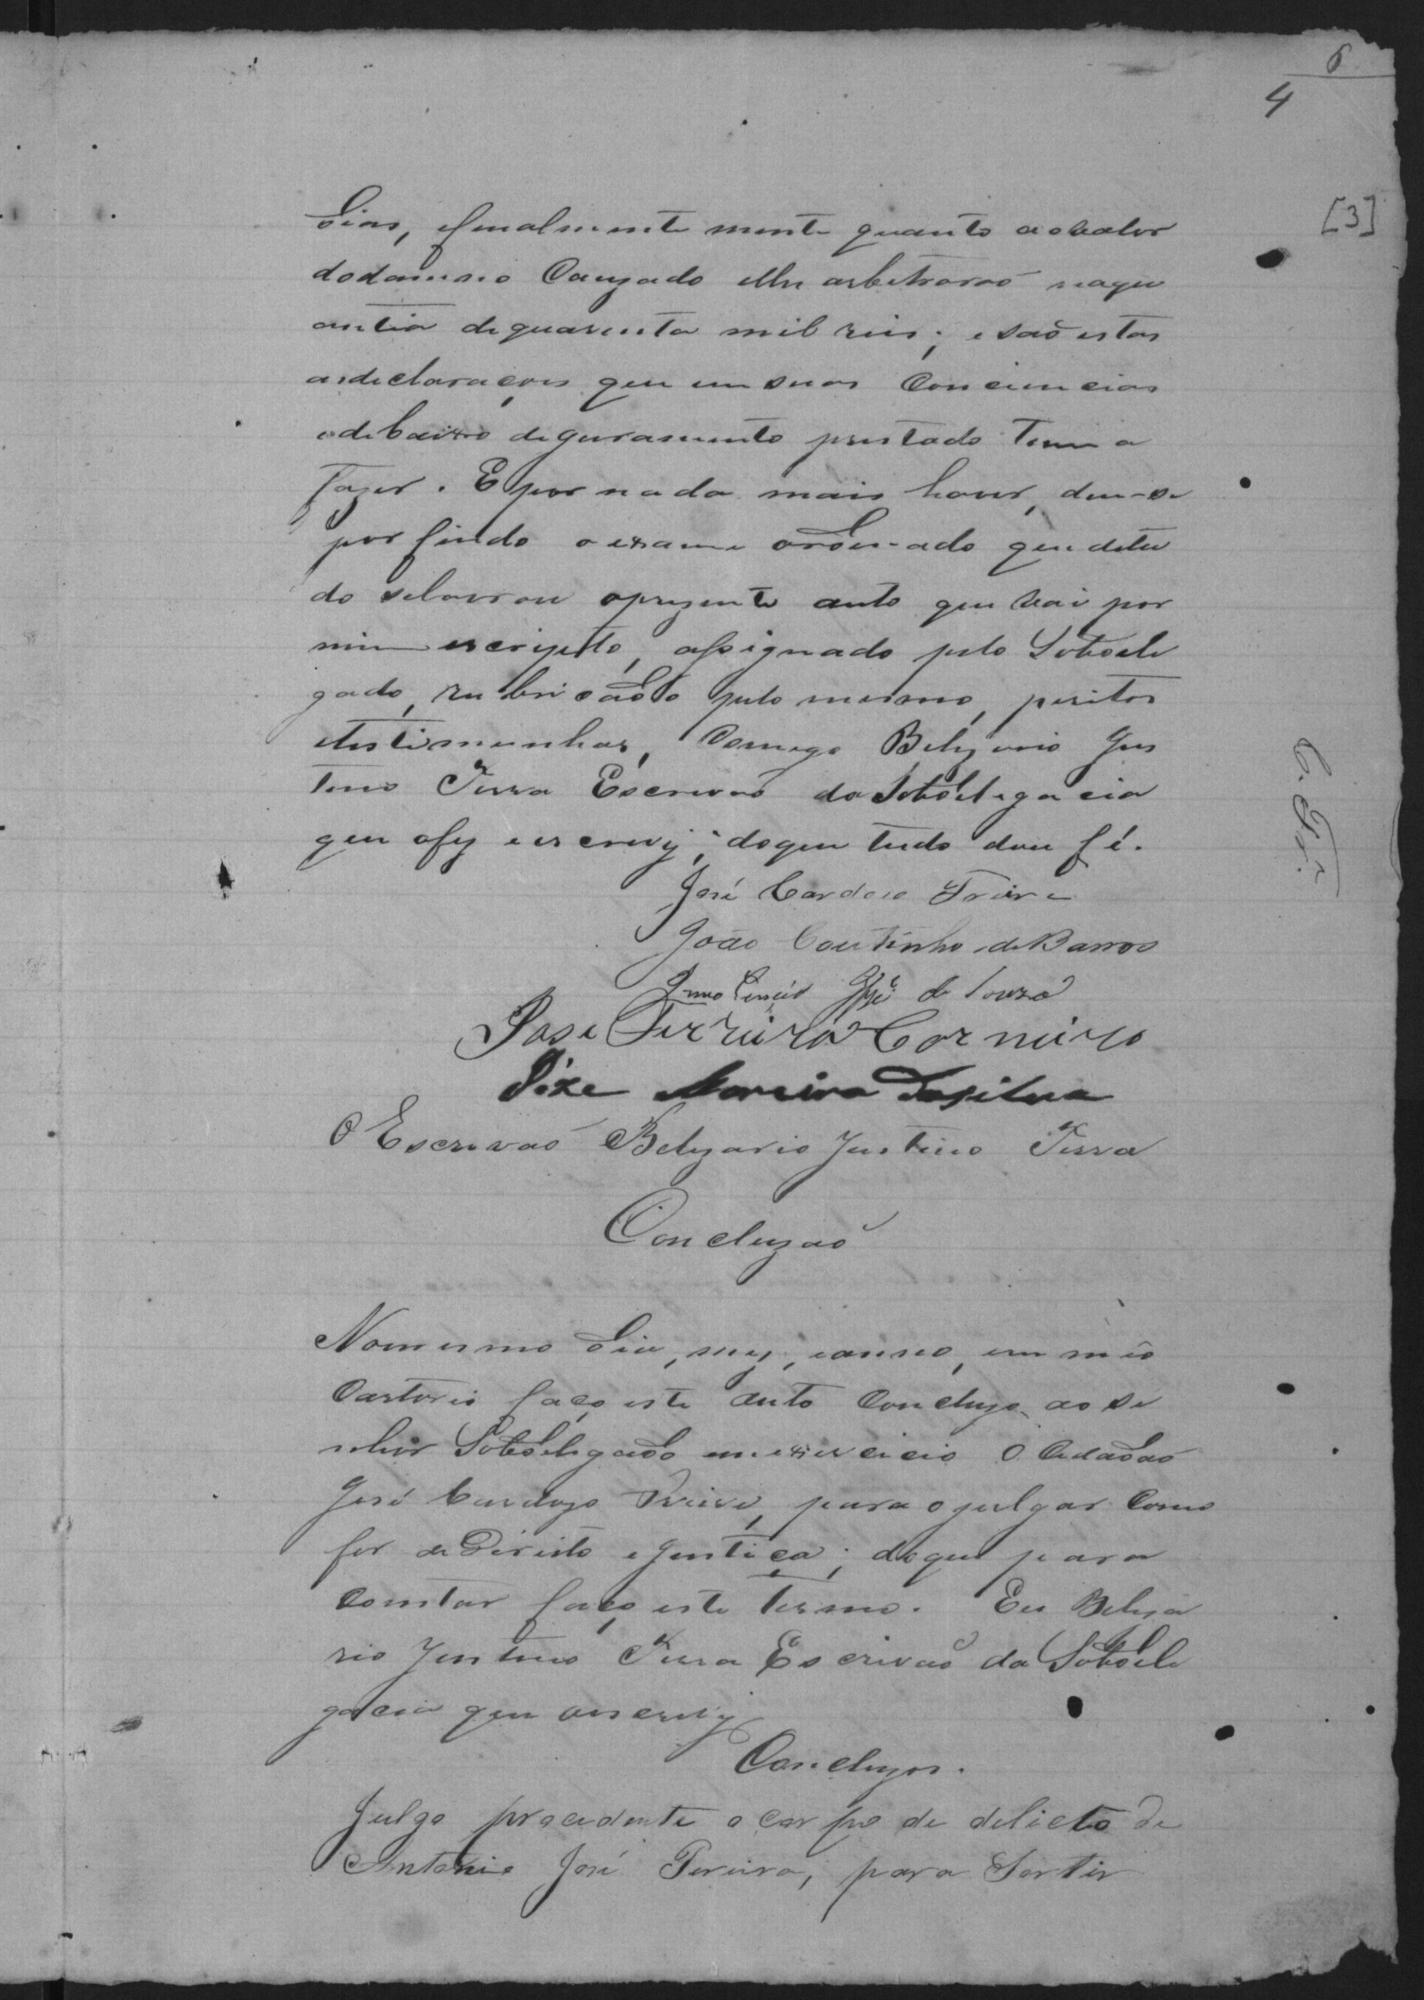 6
4
[3]
dias, efinalmente mente quanto ao valor
dodamno Cauzado elles arbitrarão naqu
antia dequarenta mil reis; e são estas
asdeclarações que em suas Conciencias
edebaixo dejuramento prestado Tem a
Fazer. E por nada mais haver, deu-se
por findo o exame ordenado que detu
do selavrou oprezente auto que vai por
mim escripto, assignado pelo Subdele
gado, rubricado pelo mesmo, peritos
etestimunhas, Comigo Belizario Jus
tino Terra Escrivão daSubdelegacia
que ofiz e escrevy; doque tudo dou fé.
José Cardoso Freire
João Coutinho de Barros
Innocencio José de Souza
José Ferreira Carneiro
José Moreira Dasilva
O Escrivão Belizario Justino Terra
C. Fr.e
Concluzão
Nomesmo dia, mez, eanno, em meo
Cartorio faço este auto Concluzo ao se
nhor Subdelegado emexercicio O Cidadão
José Cardozo Freire, para ojulgar Como
for de Direito e Justiça; doque para
Constar faço este Termo. Eu Beliza
rio Justino Terra Escrivão da Subdele
gacia que oescrevy
Concluzos.
Julgo procedente o corpo de delicto de
Antonio José Pereira, para Sortir